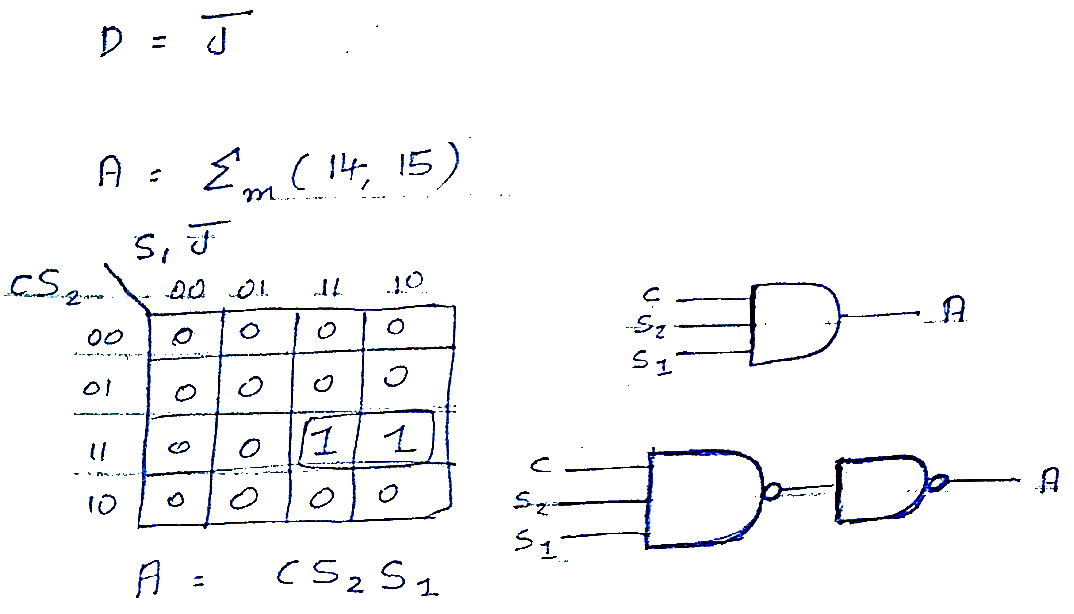 D = J̅
A = Σm (14, 15)
S₁ J̅
CS₂ 00 01 11 10
00 0 0 0 0
01 0 0 0 0
11 0 0 1 1
10 0 0 0 0
A = CS₂S₁
C
S₂
S₁
A
C
S₂
S₁
A